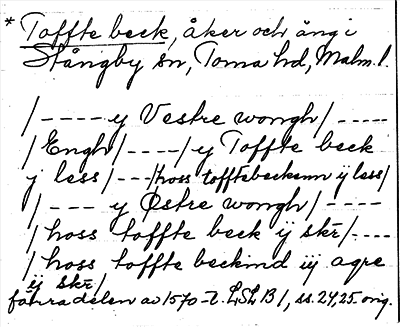 * Toffte beck, åker och äng i
Stångby sn, Torna hd, Malm. l.
/---- y Vestre wongh/ -----
/Engh/----/y Toffte beck
y less/---/hoss tofftebeckenn ÿ less/
/--- y Østre wongh/ ----
/hoss toffte beck ÿ skr/----
/hoss toffte beckind iij agre
ÿ skr/
förra delen av 1570-t. LSLB 1, ss. 24, 25. orig.